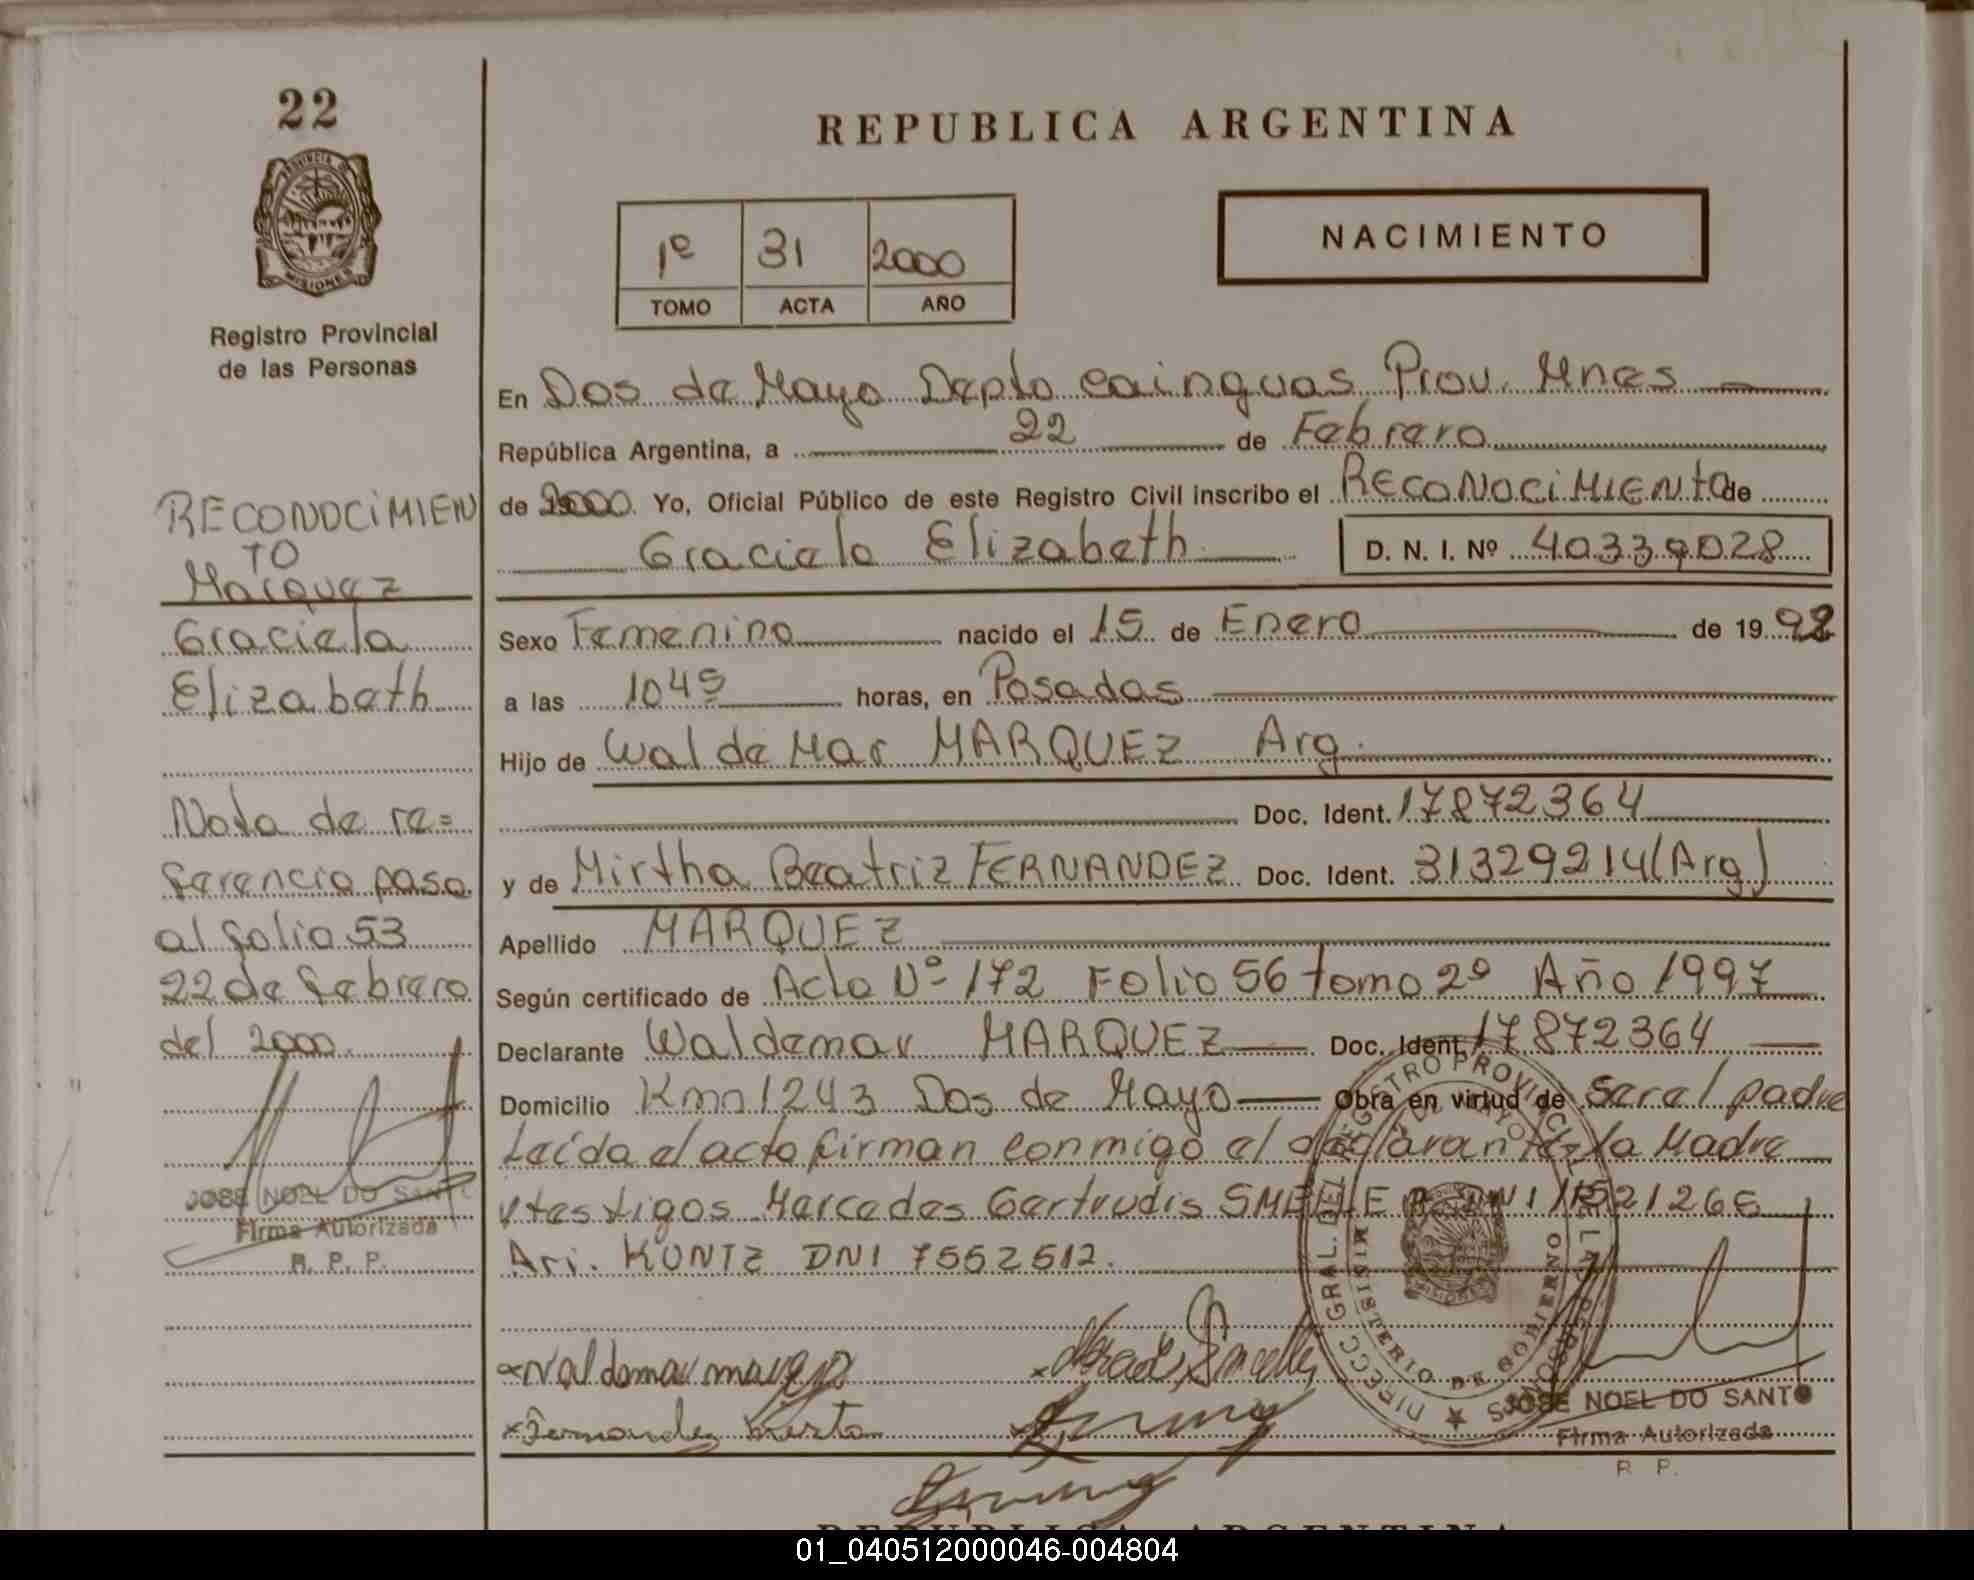 22
PROVINCIA DE
MISIONES
Registro Provincial
de las Personas
RECONOCIMIEN
TO
Marquez
Graciela
Elizabeth
Nota de re=
ferencia pasa
al folio 53
22 de febrero
del 2000.
JOSE NOEL DO SANTO
Firma Autorizada
R. P. P.
REPUBLICA ARGENTINA
1º 31 2000
TOMO ACTA AÑO
NACIMIENTO
En Dos de Mayo Depto Cainguas Prov. Mnes
República Argentina, a 22 de Febrero
de 2000. Yo, Oficial Público de este Registro Civil inscribo el Reconocimiento de
Graciela Elizabeth D. N. I. Nº 40339028
Sexo Femenino nacido el 15 de Enero de 19 92
a las 1045 horas, en Posadas
Hijo de Waldemar MARQUEZ Arg.
Doc. Ident. 17872364
y de Mirtha Beatriz FERNANDEZ Doc. Ident. 31329214 (Arg)
Apellido MARQUEZ
Según certificado de Acta Nº 172 Folio 56 tomo 2º Año 1997
Declarante Waldemar MARQUEZ Doc. Ident. 17872364
Domicilio Km 1243 Dos de Mayo Obra en virtud de ser el padre
Leída el acta firman conmigo el declarante, la Madre
y testigos Mercedes Gertrudis DNI
Ari. KUNTZ DNI 7552512.
DIRECC GRAL. DEL REGISTRO PROVINCIAL DE LAS PERSONAS
MINISTERIO DE GOBIERNO
MISIONES
x Waldemar marquez
x Fernandez Mirta
JOSE NOEL DO SANTO
Firma Autorizada
R P.
REPUBLICA ARGENTINA
01_040512000046-004804